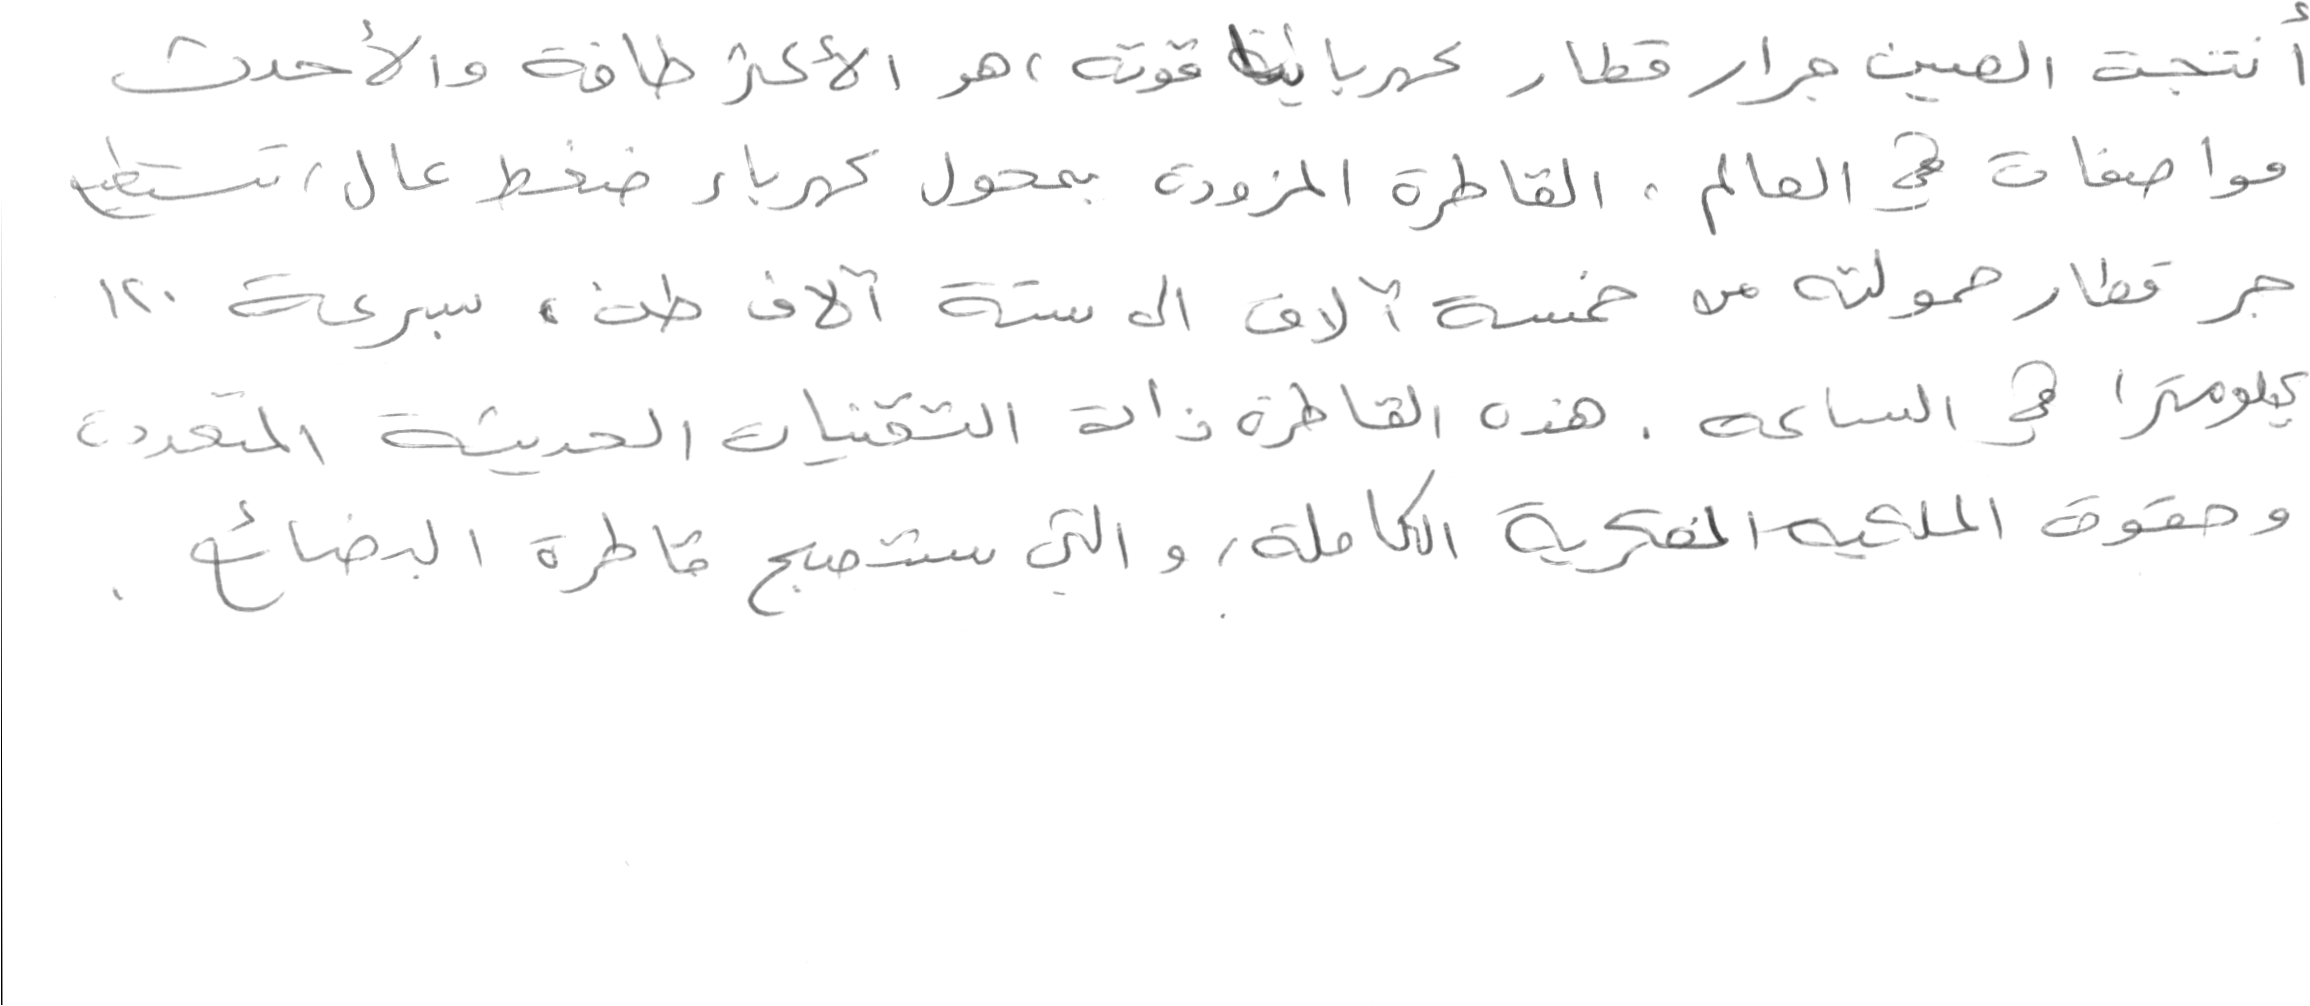 أنتجت الصين جرار قطار كهربائيا قوته ، هو الأكثر طاقة والأحدث
مواصفات في العالم . القاطرة المزودة بمحول كهرباء ضغط عال ، تستطيع
جر قطار حمولته من خمسة آلاف الى ستة آلاف طن ، سبرعة ١٢٠
كيلومترا في الساعة . هذه القاطرة ذات التقنيات الحديثة المتعددة
وحقوق الملكيه الفكرية الكاملة ، والتي ستصبح قاطرة البضائع .